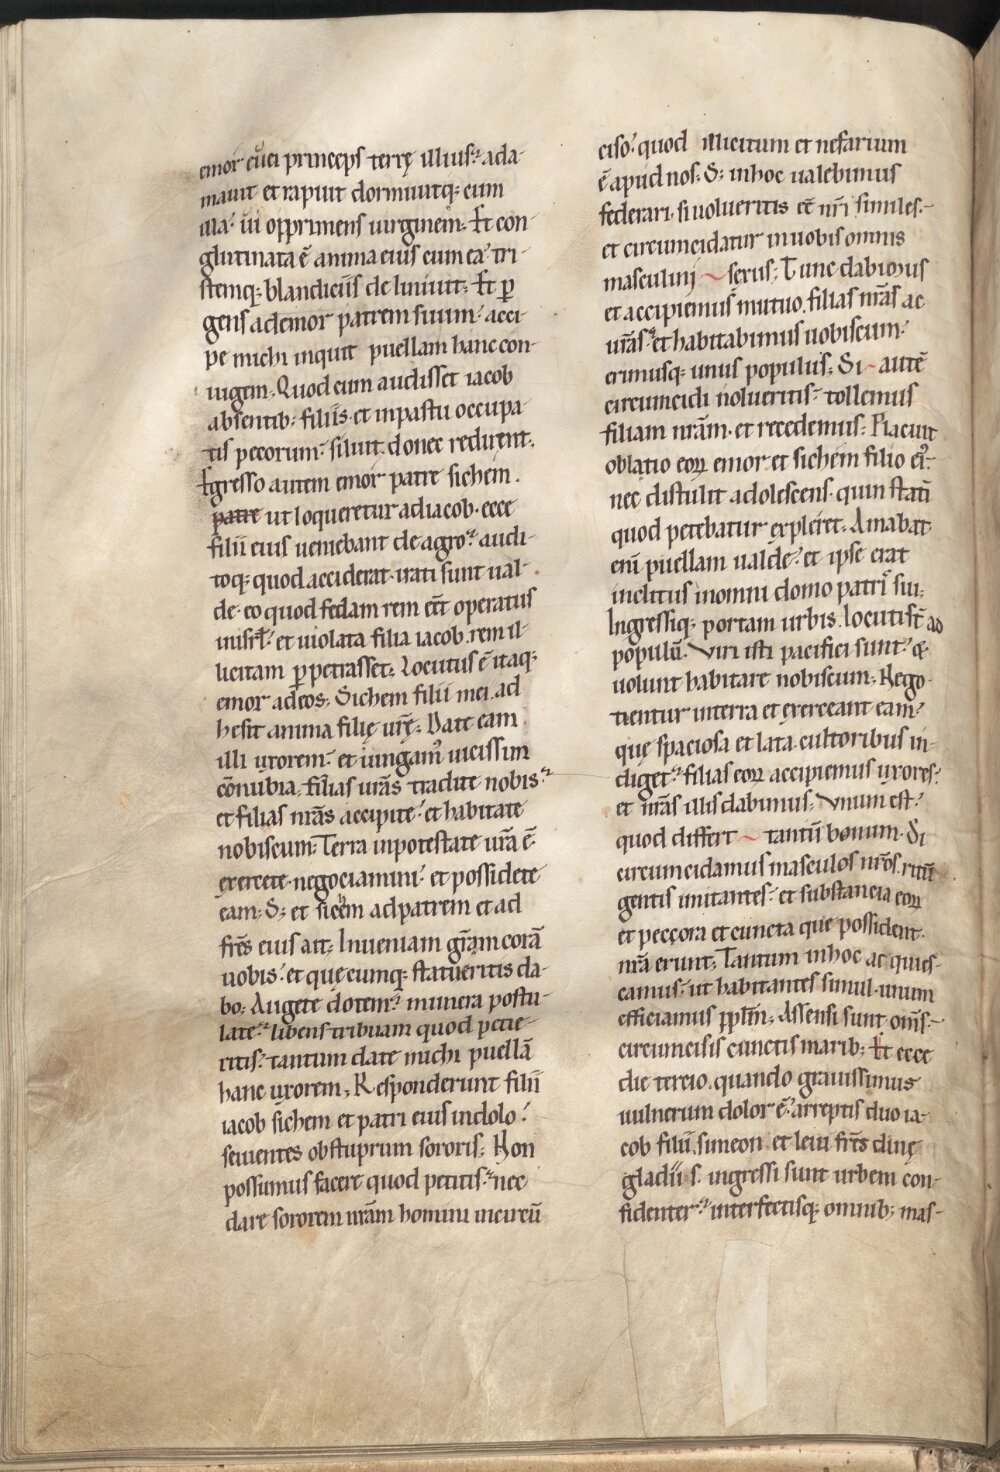 emor euei princeps terrę illius. ada-
mauit et rapuit dormiuitq; cum
illa. ui opprimens uirginem. Et con-
glutinata ē anima eius cum ea. tri-
stemq; blandiciis deliniuit. Et p̲
gens ad emor patrem suum. acci-
pe michi inquit puellam hanc con-
iugem. Quod cum audisset iacob
absentib; filiis. et in pastu occupa-
tis pecorum. siluit. donec redirent.
Egresso autem emor patre sichem.
patre ut loqueretur ad iacob. ecce
filii eius ueniebant de agro. audi-
toq; quod acciderat. irati sunt ual-
de. eo quod fedam rem eēt operatus
in isrł. et uiolata filia iacob. rem il-
licitam p̲petrasset. Locutus ē itaq;
emor ad eos. Sichem filii mei. ad
hesit anima filię urę. Date eam
illi uxorem. et iungam᷒ uicissim
cōnubia. filias urās tradite nobis.
et filias nrās accipite. et habitate
nobiscum. Terra in potestate urā ē.
exercete. negociamini. et possidete
eam. S; et sicēm ad patrem et ad
frēs eius ait. Inueniam grām corā
uobis. et quecumq; statueritis da-
bo. Augete dotem. munera postu-
late. libens tribuam quod petie-
ritis. tantum date michi puellā
hanc uxorem. Responderunt filii
iacob sichem et patri eius in dolo.
seuientes ob stuprum sororis. Non
possumus facere quod petitis. nec
dare sororem nrām homini incircū
ciso. quod illicitum et nefarium
ē apud nos. S; in hoc ualebimus
federari. si uolueritis eē nr̄i similes.
et circumcidatur in uobis omnis
masculini sexus. Tunc dabimus
et accipiemus mutuo. filias nrās ac
urās. et habitabimus uobiscum.
erimusq; unus populus. Si autē
circumcidi nolueritis. tollemus
filiam nrām. et recedemus. Placuit
oblatio eoꝝ emor. et sichem filio ei᷒.
nec distulit adolescens. quin statī
quod petebatur expleret. Amabat
enī puellam ualde. et ipse erat
inclitus in omni domo patri᷒ sui.
Ingressiq; portam urbis. locuti st̄ ad
populū. Viri isti pacifici sunt. &
uolunt habitare nobiscum. Nego-
tientur in terra et exerceant eam.
quę spaciosa et lata. cultoribus in-
diget. filias eoꝝ accipiemus uxores.
et nrās illis dabimus. Vnum est.
quod differt tantū bonum. Si
circumcidamus masculos nrōs. ritū
gentis imitantes. et substancia eoꝝ
et peccora et cuncta que possident.
nrā erunt. Tantum in hoc ac quies-
camus. ut habitantes simul. unum
efficiamus pplm̄. Assensi sunt om̄s.
circumcisis cunctis marib; Et ecce
die tercio. quando grauissimus
uulnerum dolor ē. arreptis duo ia-
cob filii. simeon et leui frēs dinę
gladii s. ingressi sunt urbem con-
fidenter. interfectisq; omnib; mas-